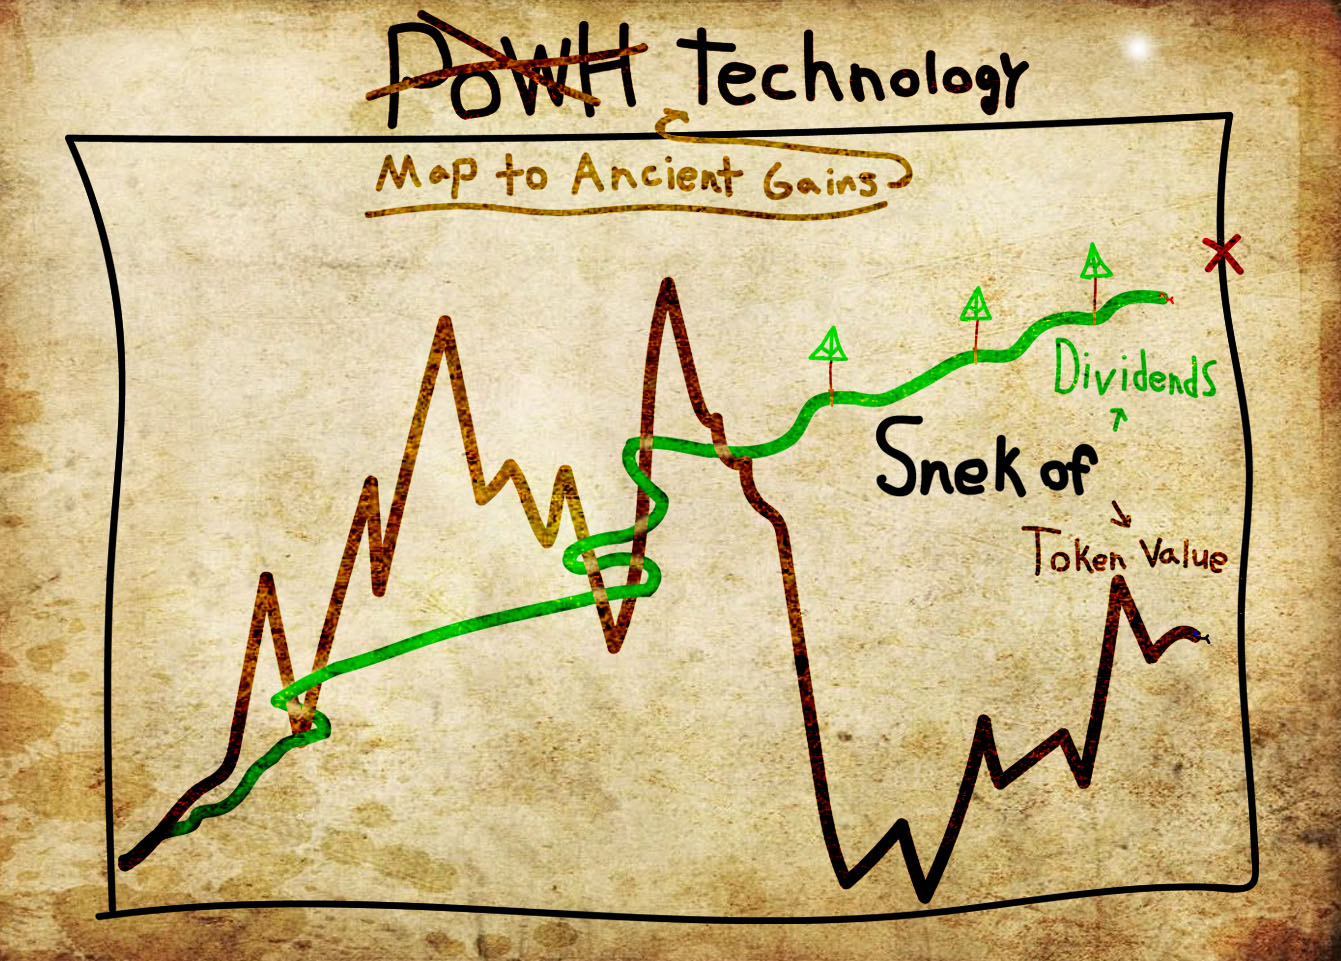 PoWH Technology
Map to Ancient Gains
Dividends
Snek of
Token Value